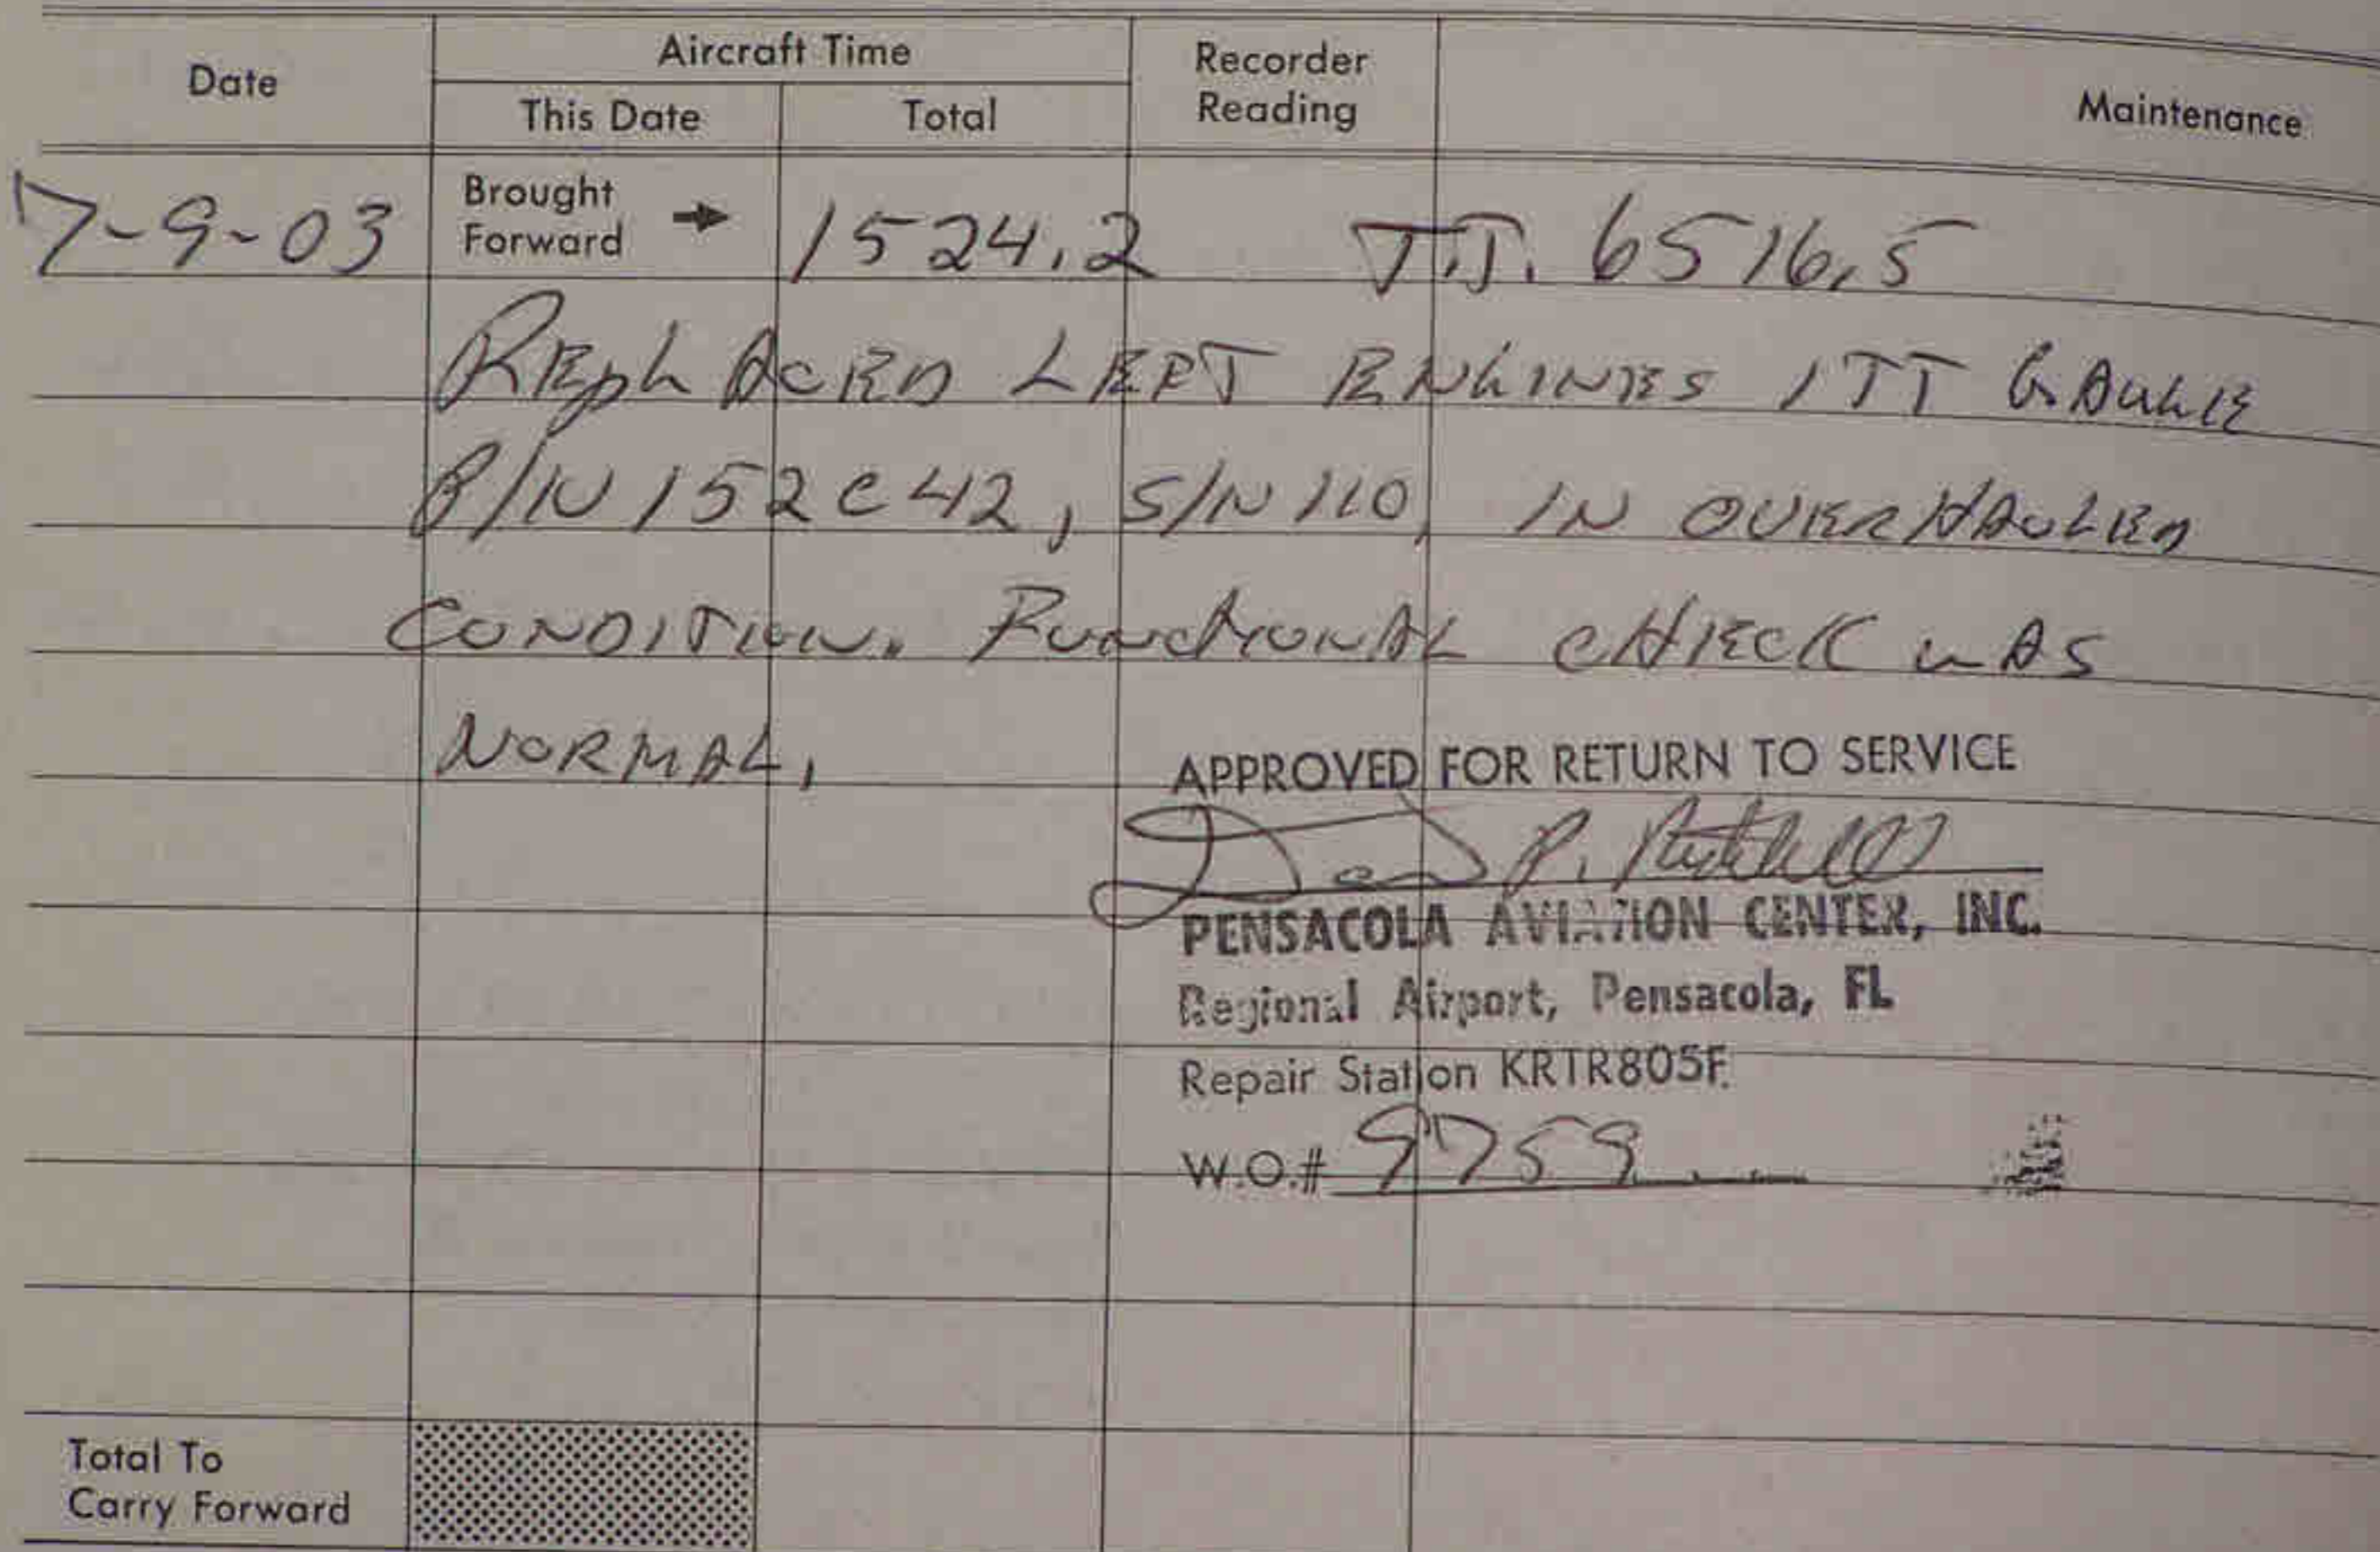 Date Aircraft Time Recorder Reading Maintenance
This Date Total
7-9-03 Brought Forward → 1524.2 T.T. 6516.5
REPLACED LEFT ENGINES ITT GAUGE
P/N 152C42, S/N 110, IN OVERHAULED
CONDITION. FUNCTIONAL CHECK WAS
NORMAL.
APPROVED FOR RETURN TO SERVICE
P.
PENSACOLA AVIATION CENTER, INC.
Regional Airport, Pensacola, FL
Repair Station KRTR805F
W.O.# 9759
Total To
Carry Forward